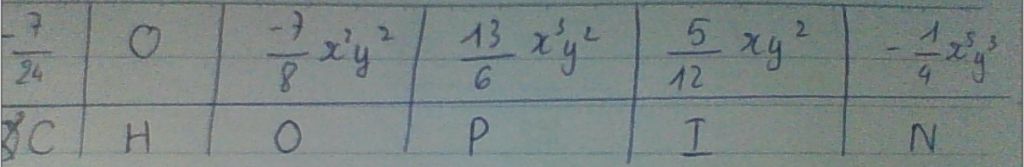 -7/24 | 0 | -7/8 x³y² | 13/6 x³y² | 5/12 xy² | -1/4 x³y³
C | H | O | P | I | N